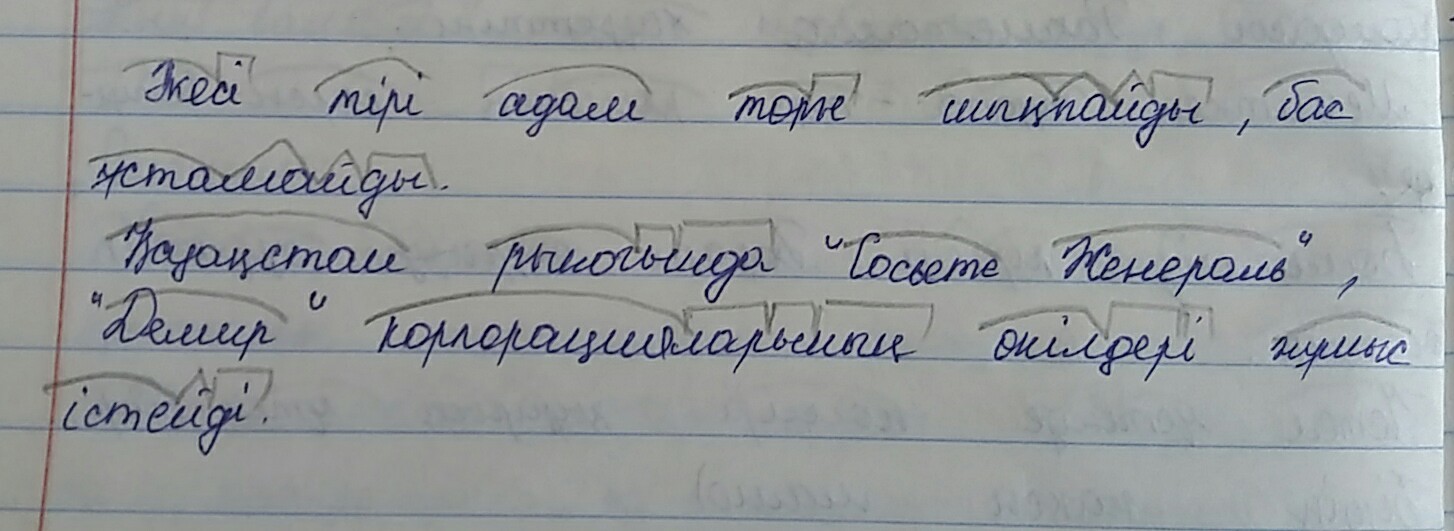 Жесі тірі адам торге шықпайды, бас
ұстамайды.
Қазақстан рыногында "Сосьете Женераль",
"Демир" корпорацияларының өкілдері жұмыс
істейді.